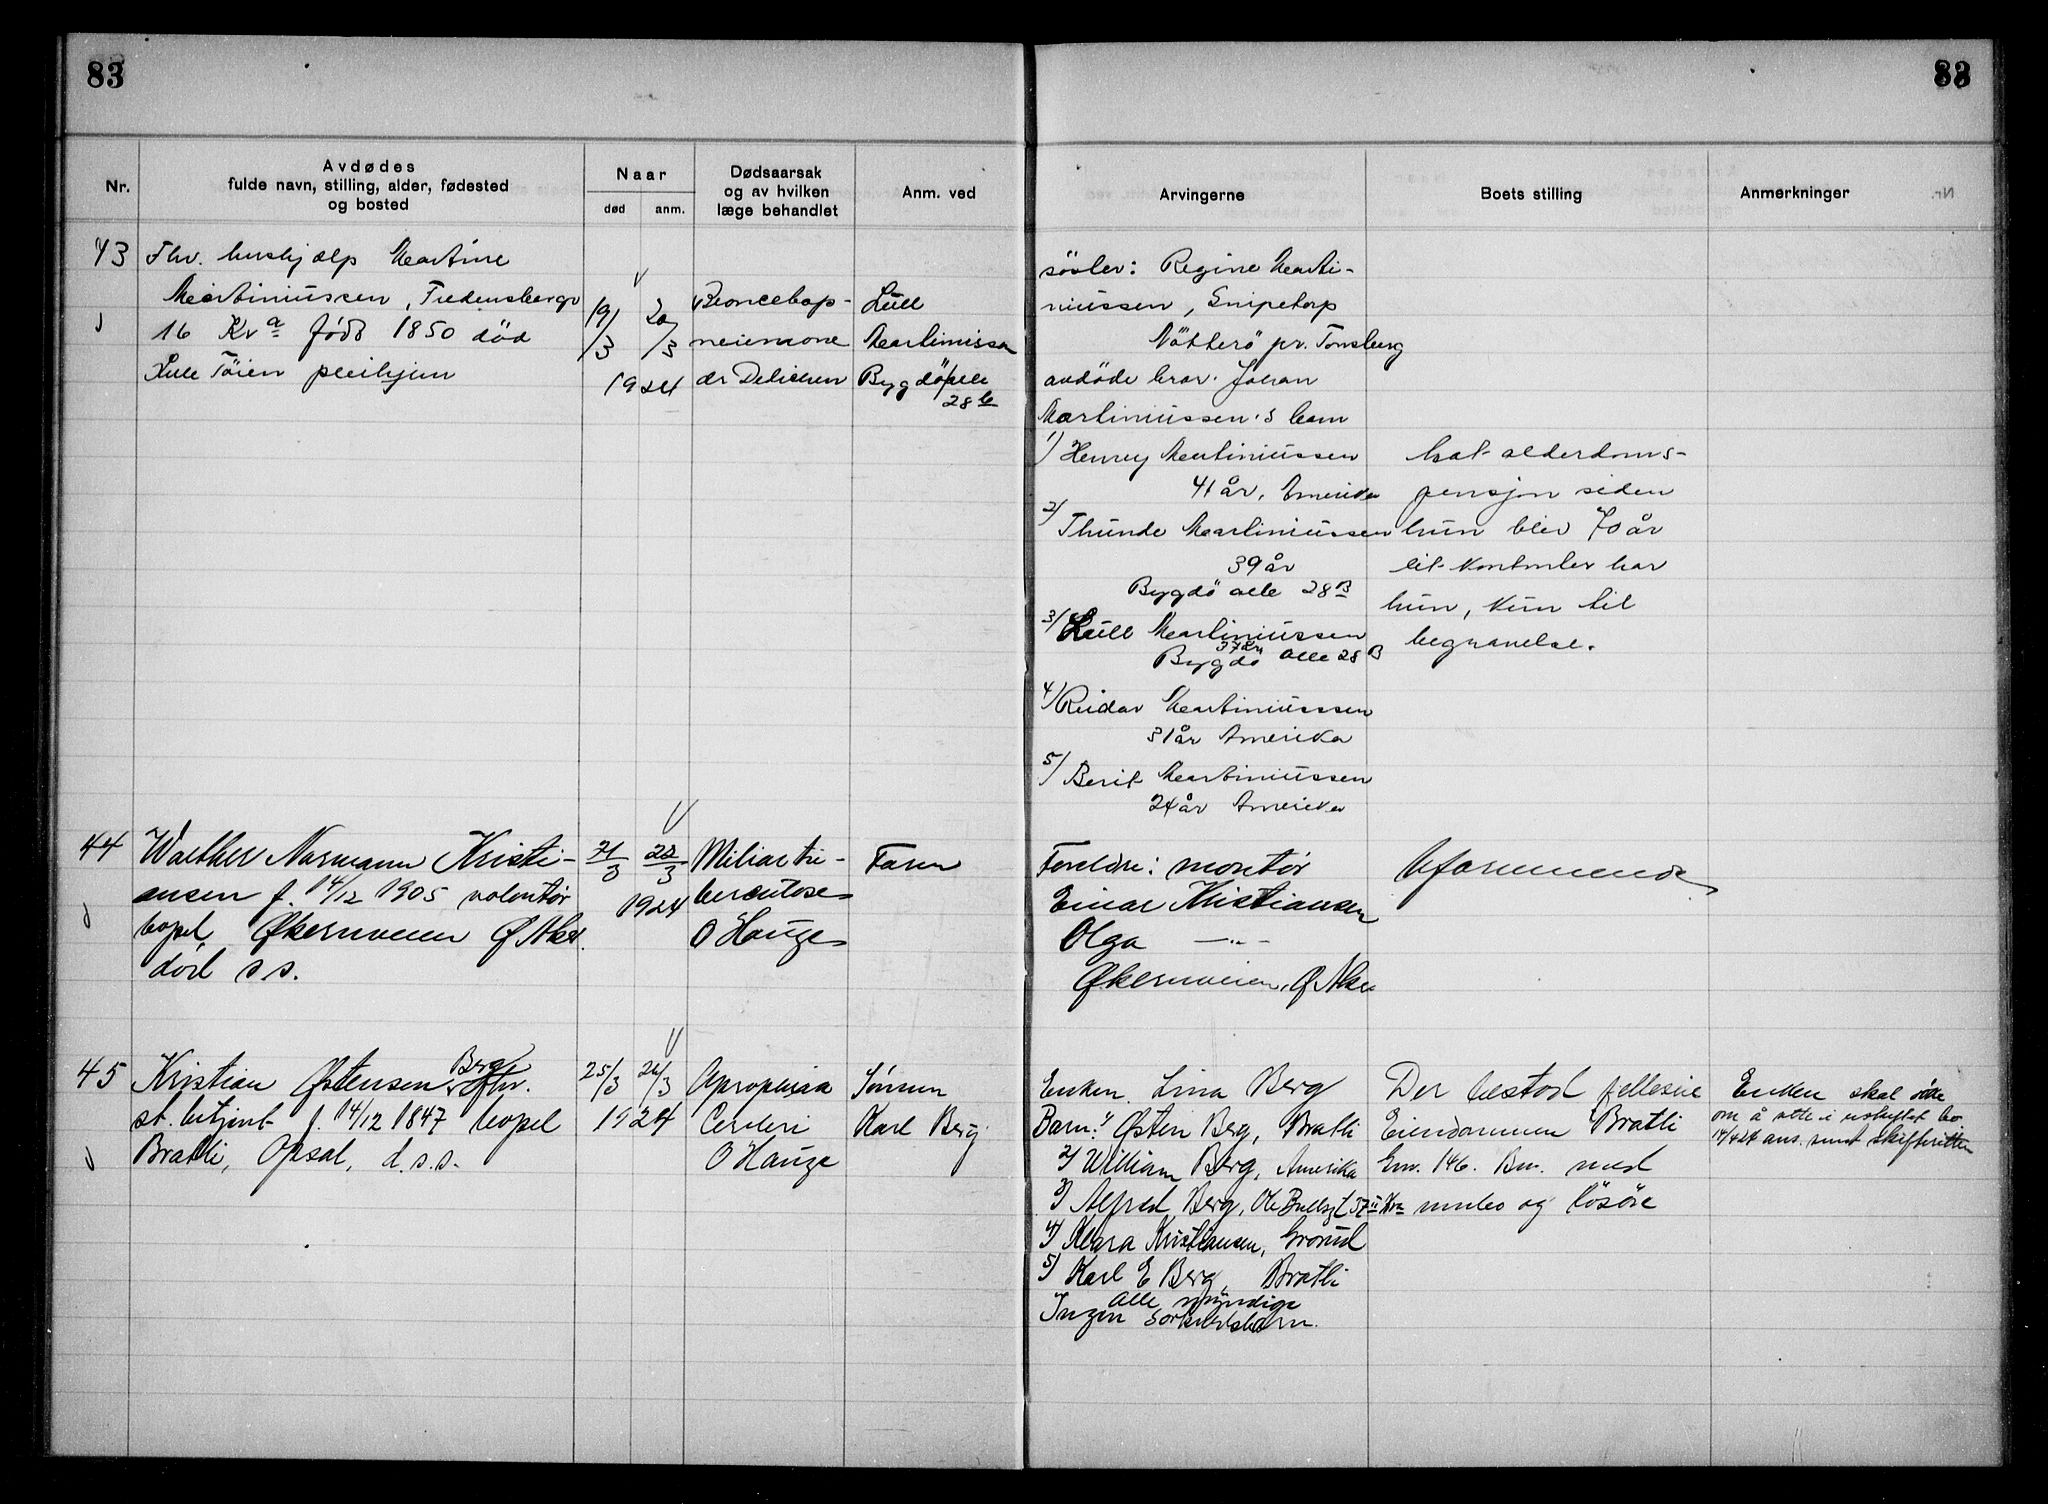 83
83
Nr.
Avdødes
fulde navn, stilling, alder, fødested
og bosted
Naar
død
anm.
Dødsaarsak
og av hvilken
læge behandlet
Anm. ved
Arvingerne
Boets stilling
Anmerkninger
43
Fhv. hushjælp Martine
Martiniussen, Fredensborgv
16 Kr.a født 1850 død
Tøien pleihjem
19/3 20/3
1924
Broncehop-
neiemone
dr
Lull
Martiniussen
Bygdö alle
28 b
søster: Regine Marti-
niussen, Snipetorp
Nötterö pr. Tønsberg
avdöde bror Johan
Martiniussen's barn
1) Henry Martiniussen
41 år, Amerika
2) Thunde Martiniussen
39 år
Bygdö alle 28 B
3) Lull Martiniussen
37 år
Bygdö alle 28 B
4) Reidar Martiniussen
31 år Amerika
5) Berit Martiniussen
24 år Amerika
hat alderdoms-
pensjon siden
hun blev 70 år
lit kontanter har
hun, kun til
begravelse.
44
Walther Normann Kristi-
ansen f. 14/12 1905 volontør
bopel Økernveien Ø Aker
død s.s.
21/3 22/3
1924
Miliartu-
berculose
O Hauge
Faren
Foreldre: montør
Einar Kristiansen
Olga —"—
Økernveien, Ø Aker
Uformuende
45
Kristian Østensen Berg fhv.
st. betjent f. 14/12 1847 bopel
Bratli, Opsal, d.s.s.
25/3 26/3
1924
Apoplexia
Cerebri
O Hauge
Sønnen
Karl Berg
Enken Lina Berg
Barn: 1) Østen Berg, Bratli
2) William Berg, Amerika
3) Alfred Berg, Ole Bullsgt 37 II Kra
4) Klara Kristiansen, Grorud
5) Karl E Berg, Bratli
Alle myndige
Ingen særkuldsbarn.
Der bestod felleseie
Eiendommen Bratli
Gnr. 146. Bnr. med
innbo og løsøre
Enken skal søke
om å sitte i uskiftet bo
14/4 24 ans. sendt skifteretten